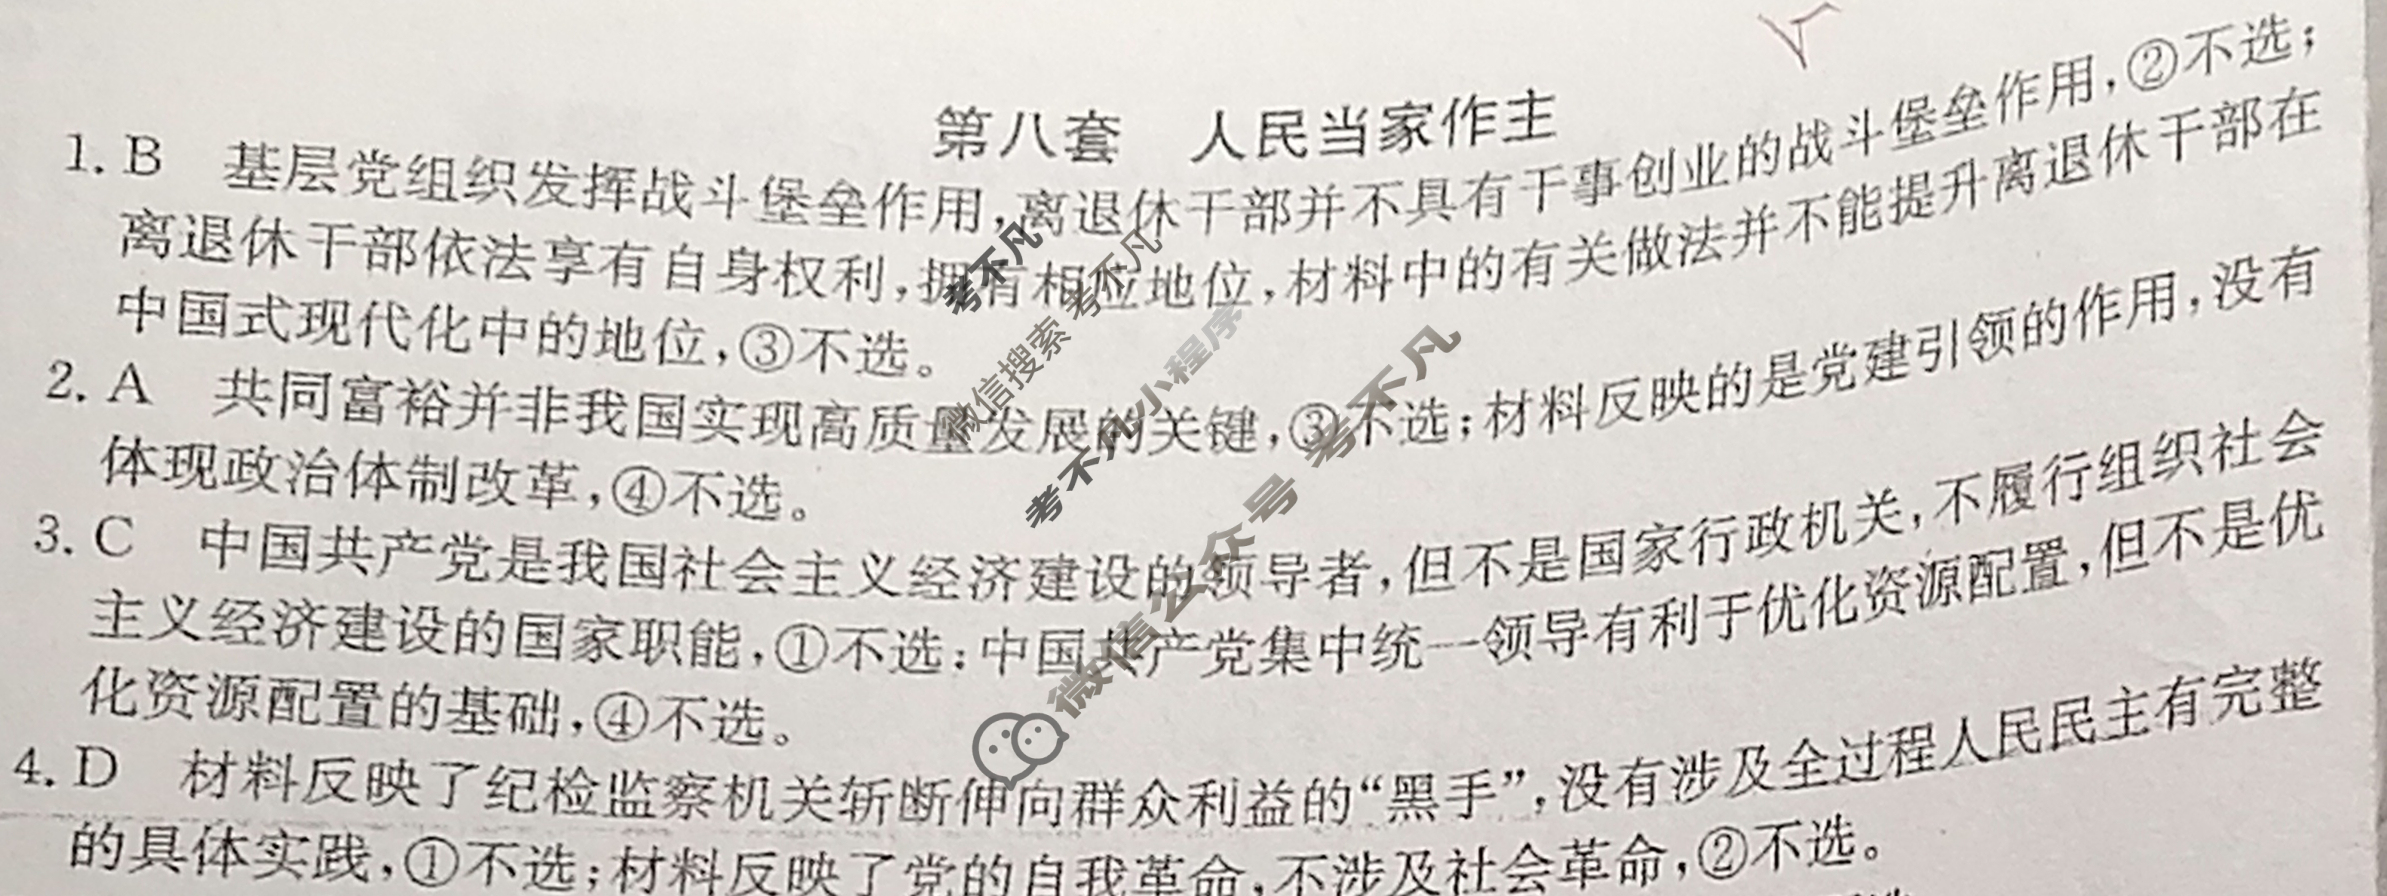 第八套 人民当家作主
1. B 基层党组织发挥战斗堡垒作用,离退休干部并不具有干事创业的战斗堡垒作用,②不选;
离退休干部依法享有自身权利,拥有相应地位,材料中的有关做法并不能提升离退休干部在
中国式现代化中的地位,③不选。
2. A 共同富裕并非我国实现高质量发展的关键,③不选;材料反映的是党建引领的作用,没有
体现政治体制改革,④不选。
3. C 中国共产党是我国社会主义经济建设的领导者,但不是国家行政机关,不履行组织社会
主义经济建设的国家职能,①不选;中国共产党集中统一领导有利于优化资源配置,但不是优
化资源配置的基础,④不选。
4. D 材料反映了纪检监察机关斩断伸向群众利益的“黑手”,没有涉及全过程人民民主有完整
的具体实践,①不选;材料反映了党的自我革命,不涉及社会革命,②不选。
考不凡
考不凡
微信搜索
考不凡小程序
微信公众号 考不凡